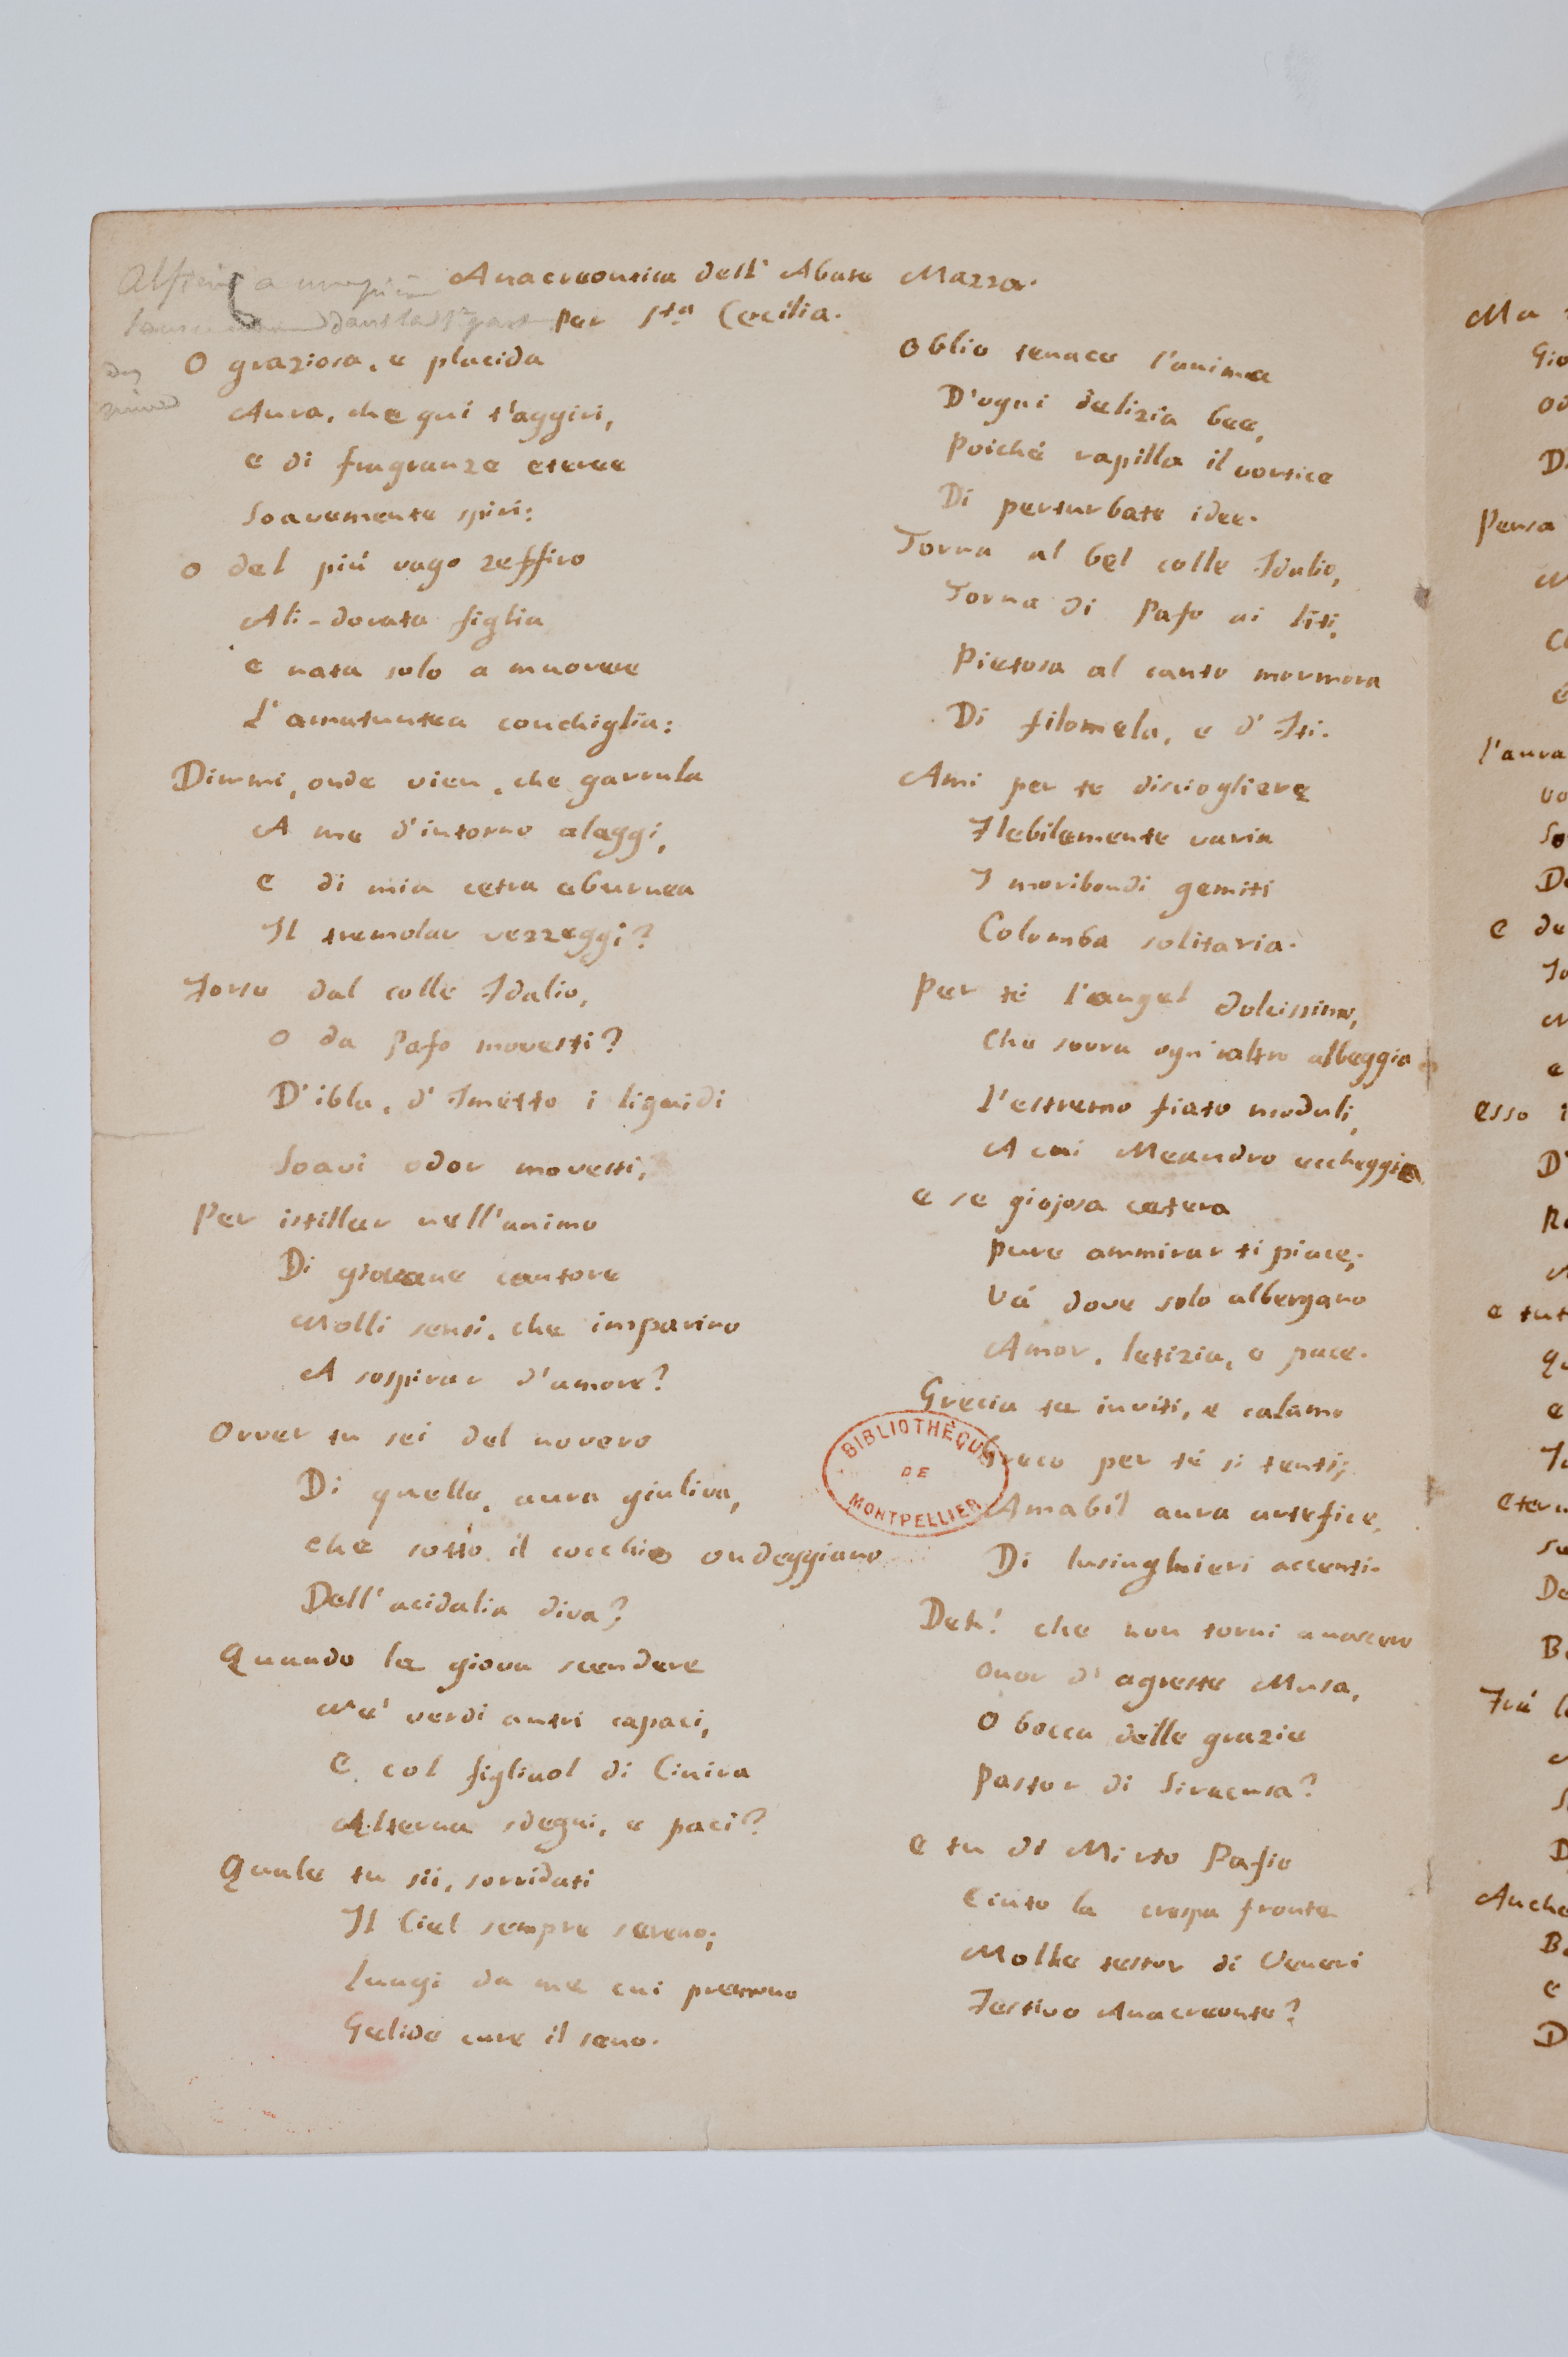 Anacreontica dell' Abate Mazza.
per Sta Cecilia.
O graziosa, e placida
Aura, che qui t'aggiri,
e di fragranze eteree
Soavemente spiri:
O del più vago zeffiro
Ali-dorata figlia
e nata solo a muovere
L'amatuntea conchiglia:
Dimmi, onde vien, che garrula
A me d'intorno aleggi,
e di mia cetra eburnea
Il tremolar vezzeggi?
Forse dal colle Idalio,
O da Pafo movesti?
D'ibla, d'Imetto i liquidi
Soavi odor movesti,
Per istillar nell'animo
Di giovane cantore
Molli sensi, che imparino
A sospirar d'amore?
Ovver tu sei del novero
Di quelle, aura giuliva,
che sotto il cocchio ondeggiano
Dell'acidalia diva?
Quando le giova scendere
Ne' verdi antri capaci,
E col figliuol di Cinira
Alterna sdegni, e paci?
Quale tu sii, sorridati
Il Ciel sempre sereno;
lungi da me cui premono
Gelide cure il seno.
Oblio tenace l'anima
D'ogni delizia bee,
Poiché rapilla il vortice
Di perturbate idee.
Torna al bel colle Idalio,
Torna di Pafo ai liti,
Pietosa al canto mormora
Di filomela, e d'Iti.
Ami per te disciogliere
Flebilemente varia
I moribondi gemiti
Colomba solitaria.
Per té l'augel dolcissimo,
Che sovra ogn'altro albeggia
L'estremo fiato moduli,
A cui Meandro eccheggia
e se giojosa cetera
pure ammirar ti piace,
Vá dove solo albergano
Amor, letizia, e pace.
Grecia te inviti, e calamo
Greco per té si tenti;
Amabil aura artefice,
Di lusinghieri accenti.
Deh! che non torni a nascere
Onor d'agreste Musa,
O bocca delle grazie
Pastor di Siracusa?
e tu di Mirto Pafio
Cinto la crespa fronte
Molle testor di Veneri
Festivo Anacreonte?
BIBLIOTHÈQUE
DE
MONTPELLIER
Ma
Gio
Di
Pensa
l'aura
So
De
e de
esso i
D'
e tut
e
Etern
De
Frá l
Anche
e
D